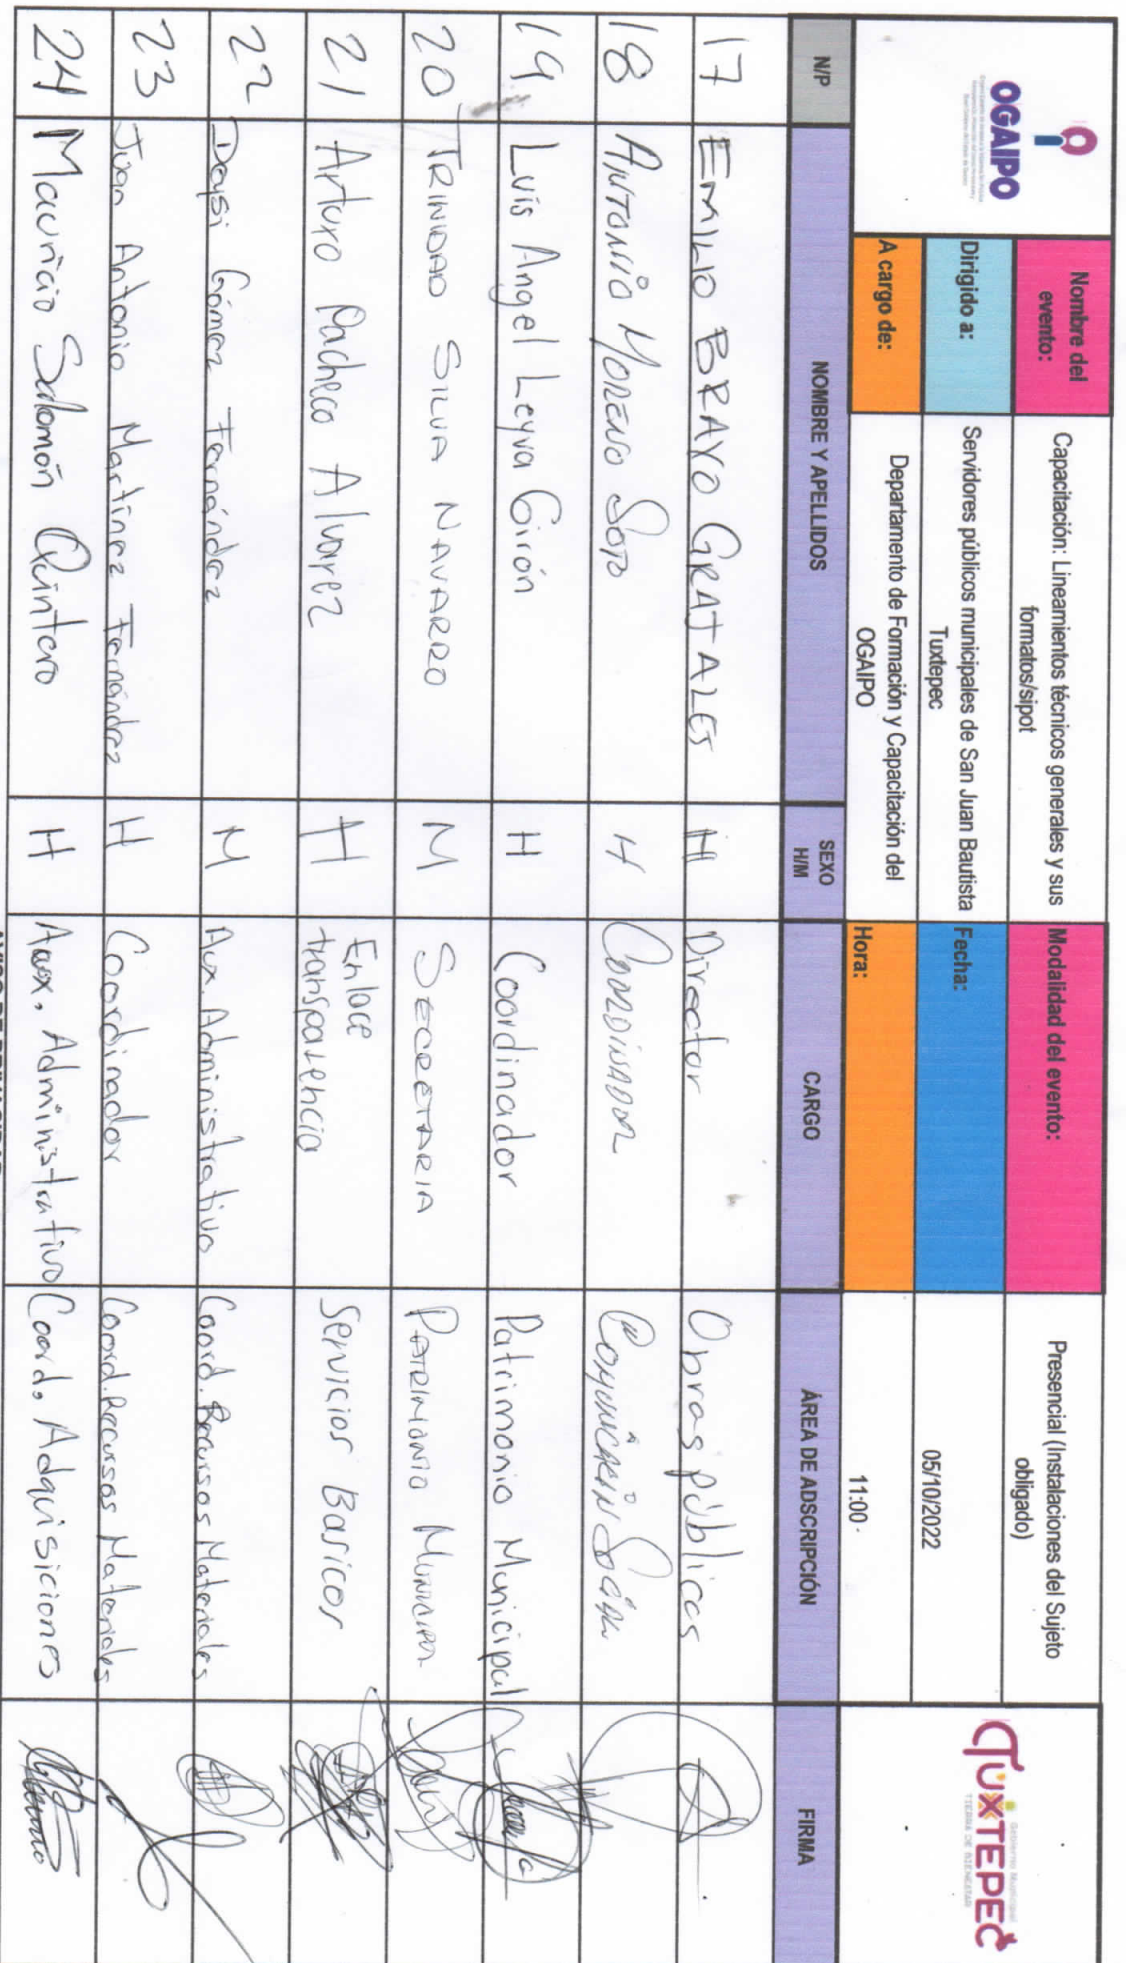 OGAIPO
Nombre del evento:
Capacitación: Lineamientos técnicos generales y sus formatos/sipot
Modalidad del evento:
Presencial (Instalaciones del Sujeto obligado)
Dirigido a:
Servidores públicos municipales de San Juan Bautista Tuxtepec
Fecha:
05/10/2022
A cargo de:
Departamento de Formación y Capacitación del OGAIPO
Hora:
11:00
Gobierno Municipal
TUXTEPEC
TIERRA DE BIENESTAR
N/P NOMBRE Y APELLIDOS SEXO H/M CARGO ÁREA DE ADSCRIPCIÓN FIRMA
17 EMILIO BRAVO GRAJALES H Director Obras públicas
18 ANTONIO MORENO SOTO H COORDINADOR COMUNICACIÓN SOCIAL
19 Luis Angel Leyva Girón H Coordinador Patrimonio Municipal
20 TRINIDAD SILVA NAVARRO M SECRETARIA PATRIMONIO MUNICIPAL
21 Arturo Pacheco Alvarez H Enlace transparencia Servicios Basicos
22 Daysi Gómez Fernández M Aux. Administrativo Coord. Recursos Materiales
23 Juan Antonio Martinez Fernández H Coordinador Coord. Recursos Materiales
24 Mauricio Salomón Quintero H Aux. Administrativo Coord. Adquisiciones